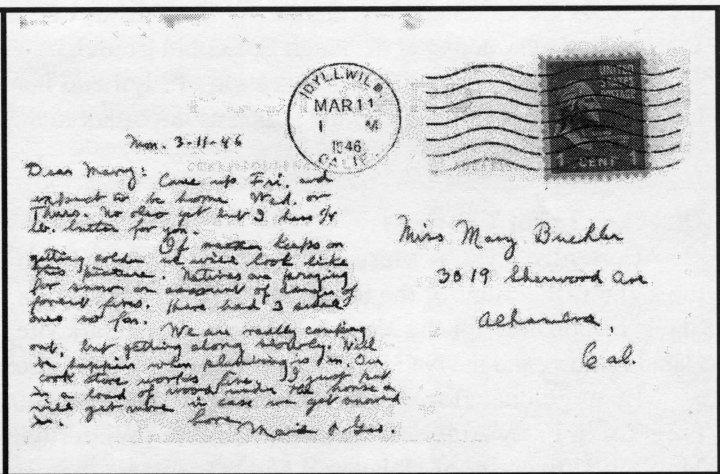 IDYLLWILD.
MAR 11
1 M
1946
CALIF.
UNITED
STATES
POSTAGE
1 CENT 1
Mon. 3-11-46
Dear Mary:
Came up Fri. and
expect to be home Wed. or
Thurs. No oleo yet but I have 1/4
lb. butter for you.
If weather keeps on
getting colder it will look like
this picture. Natives are praying
for snow on account of danger of
forest fires. Have had 3 small
ones so far.
We are really camping
out, but getting along nicely. Will
be happier when plumbing is in. Our
cook stove works fine. I just put
in a load of wood under the house &
will get more in case we get snowed
in.
Love
& Geo.
Miss Mary Buehler
3019 Sherwood Ave
Alhambra,
Cal.